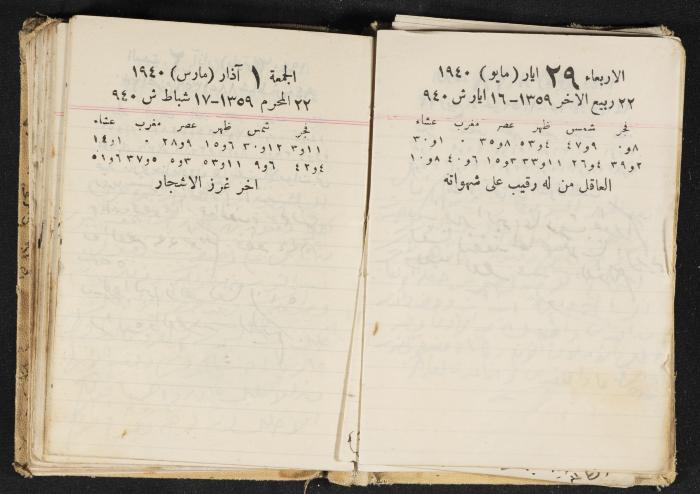 الاربعاء ٢٩ ايار (مايو) ١٩٤٠
٢٢ ربيع الاخر ١٣٥٩ - ١٦ ايار ش ٩٤٠
فجر شمس ظهر عصر مغرب عشاء
٨و٠ ٩و٤٧ ٤و٥٣ ٨و٣٥ ٠ ١و٣٠
٢و٣٩ ٤و٢٦ ١١و٣٣ ٣و١٥ ٦و٤٠ ٨و١٠
العاقل من له رقيب على شهواته
الجمعة ١ آذار (مارس) ١٩٤٠
٢٢ المحرم ١٣٥٩ - ١٧ شباط ش ٩٤٠
فجر شمس ظهر عصر مغرب عشاء
١١و٣ ١٢و٣٠ ٦و١٥ ٩و٢٨ ٠ ١و١٤
٤و٤٢ ٦و٩ ١١و٥٣ ٣و٥ ٥و٣٧ ٦و٥١
اخر غرز الاشجار